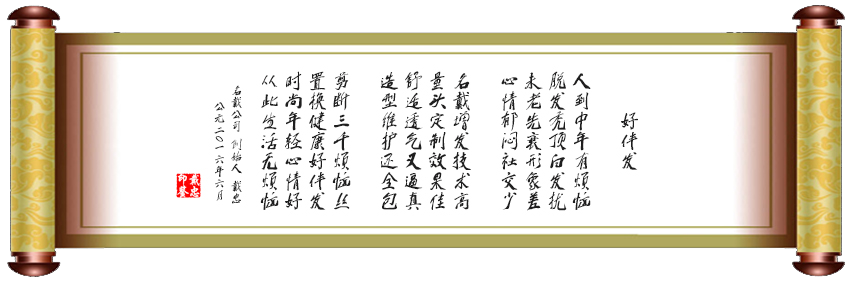 好伴发
人到中年有烦恼
脱发秃顶白发扰
未老先衰形象差
心情郁闷社交少
名戴增发技术高
量头定制效果佳
舒适透气又逼真
造型维护还全包
剪断三千烦恼丝
置换健康好伴发
时尚年轻心情好
从此生活无烦恼
名戴公司创始人 戴忠
公元二〇一六年六月